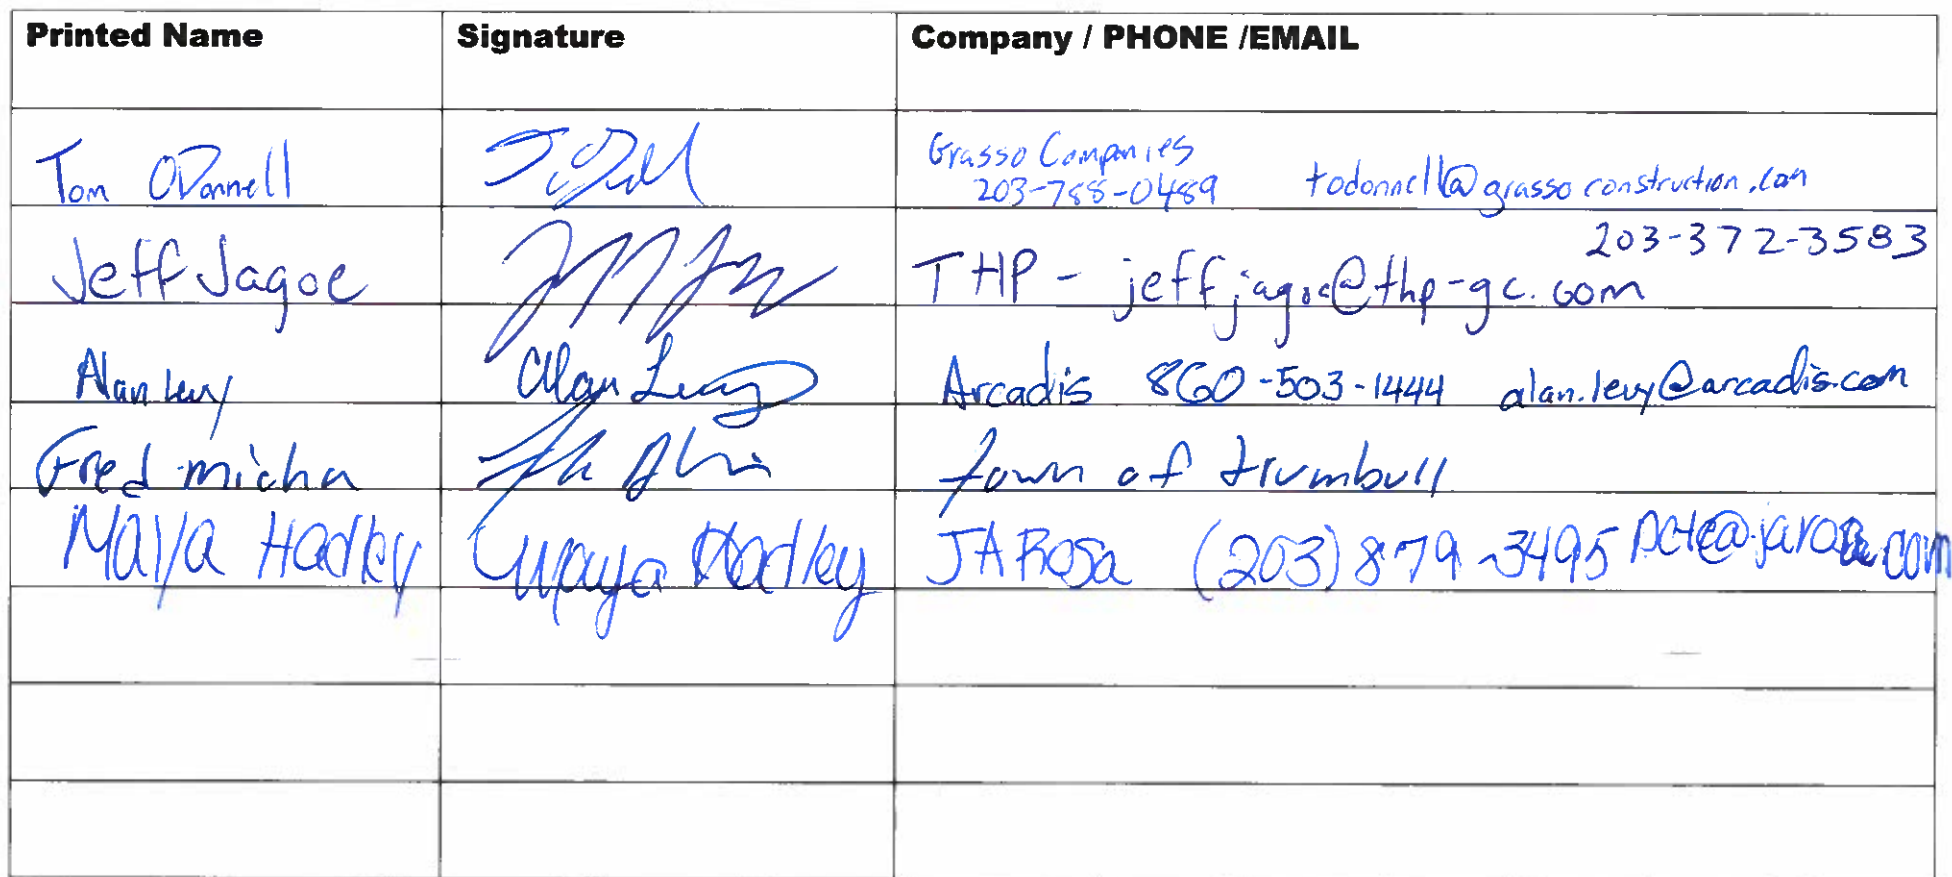 Printed Name Signature Company / PHONE /EMAIL
Tom ODonnell Grasso Companies
203-788-0489 todonnell@grassoconstruction.com
203-372-3583
Jeff Jagoe THP - jeffjagoe@thp-gc.com
Alan Levy Alan Levy Arcadis 860-503-1444 alan.levy@arcadis.com
Fred micha town of trumbull
Maya Hadley Maya Hadley JA Rosa (203) 879-3495 pete@jarosa.com